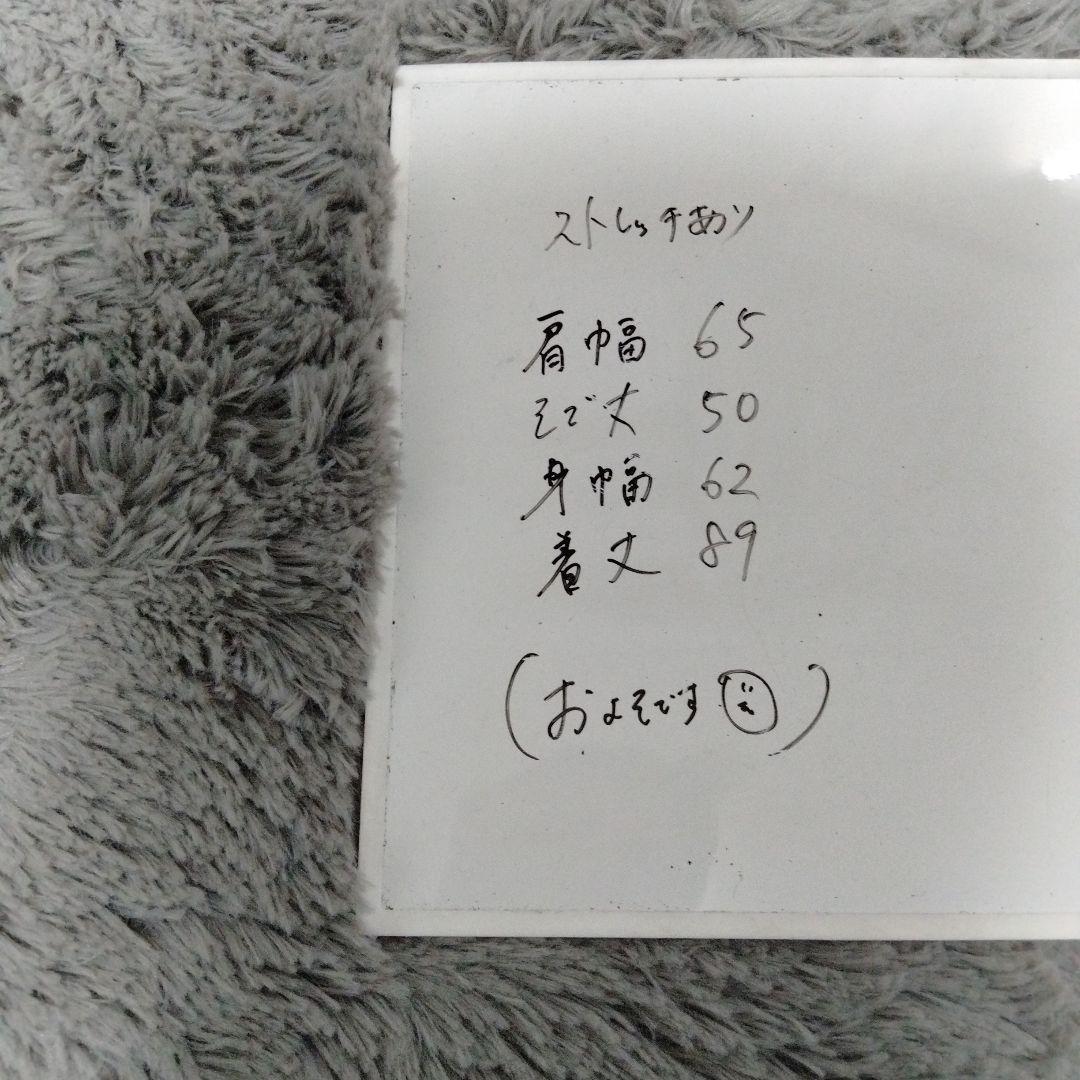 ストレッチあり
肩幅 65
そで丈 50
身幅 62
着丈 89
(およそです)